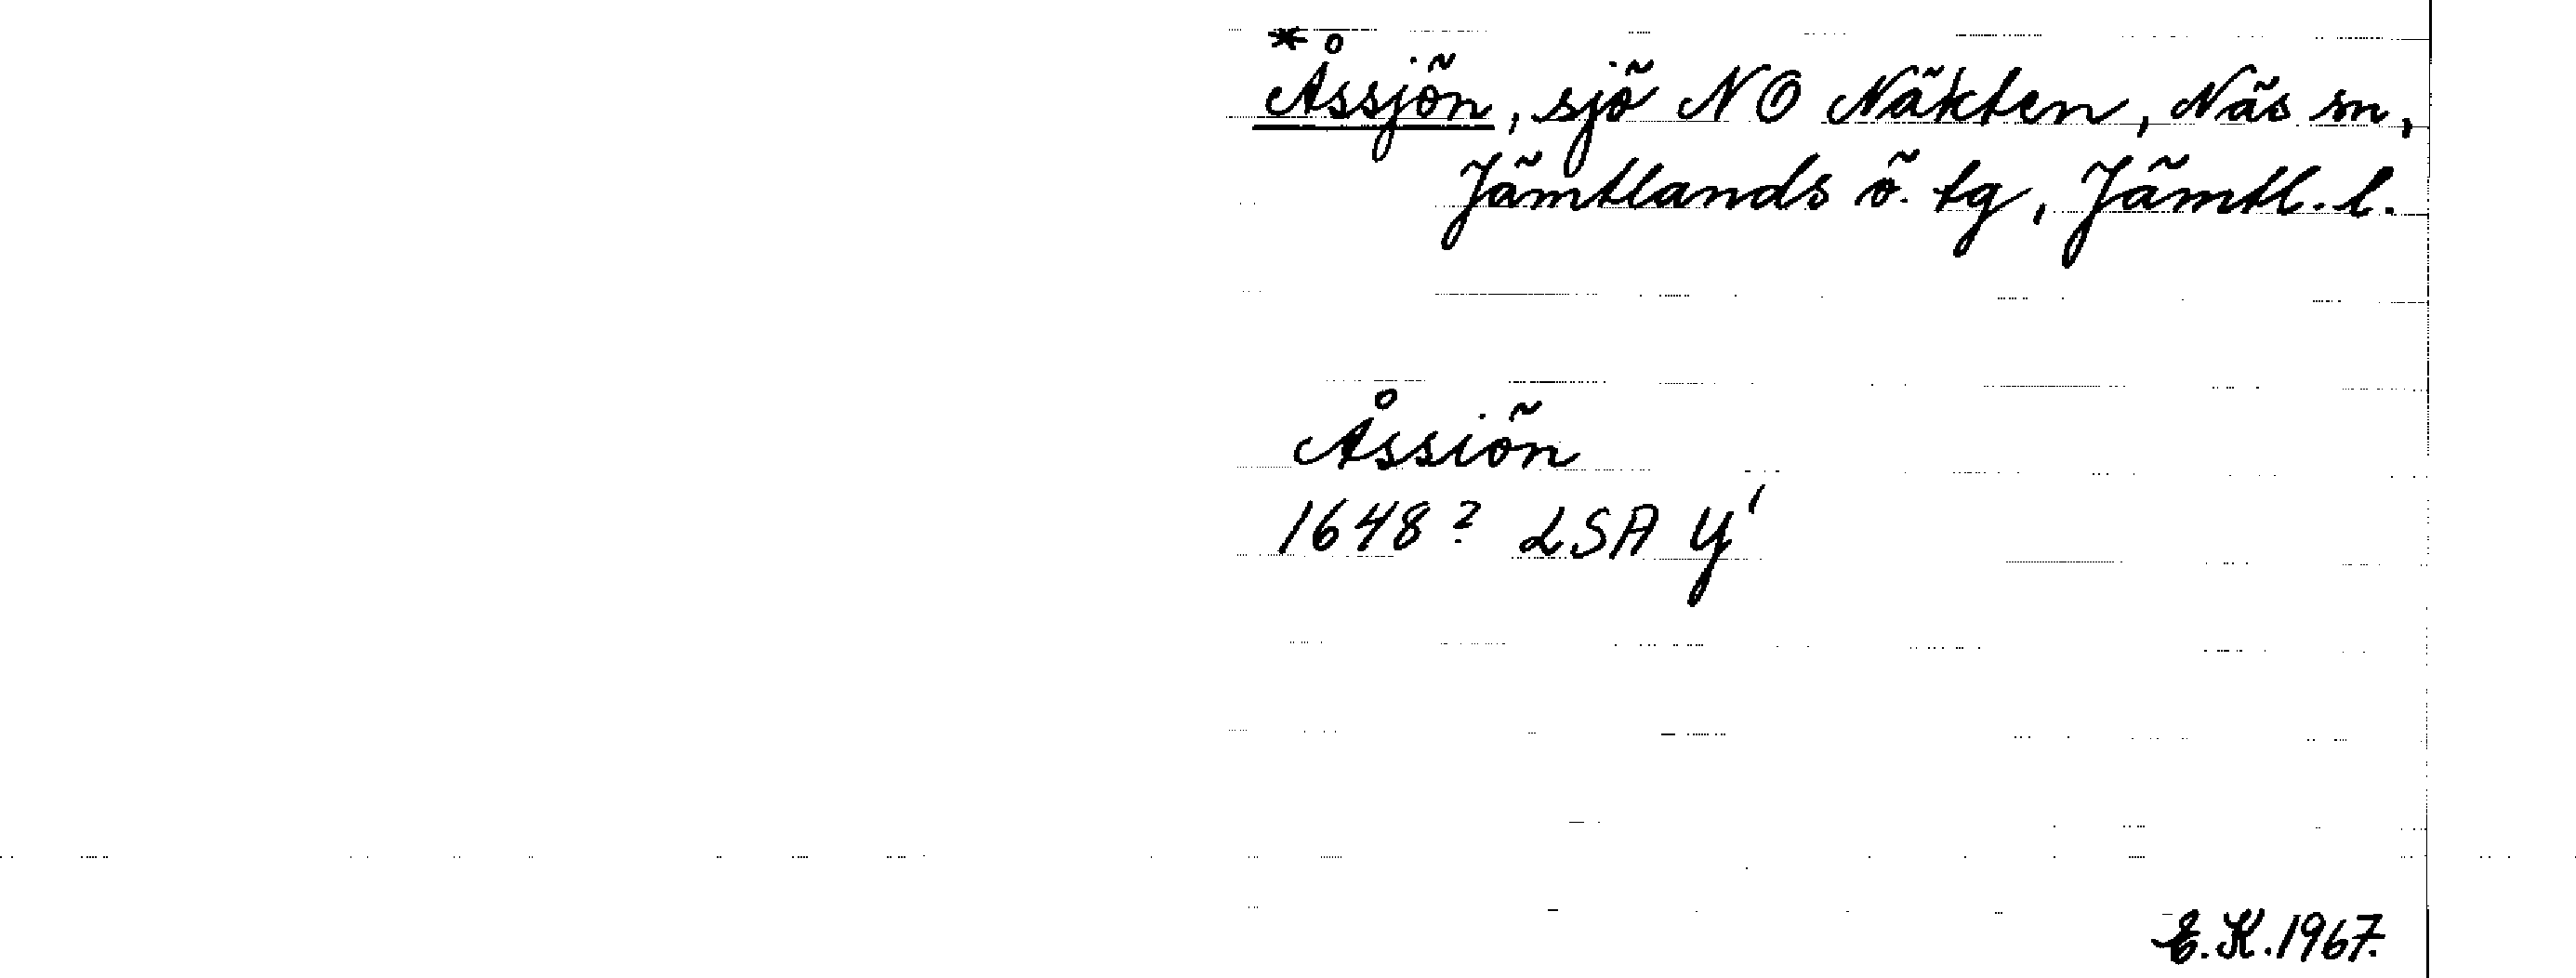 *Åssjön, sjö NO Näkten, Näs sn,
Jämtlands ö. tg, Jämtl. l.
Åssiön
1648? LSA Y'
E.K. 1967.